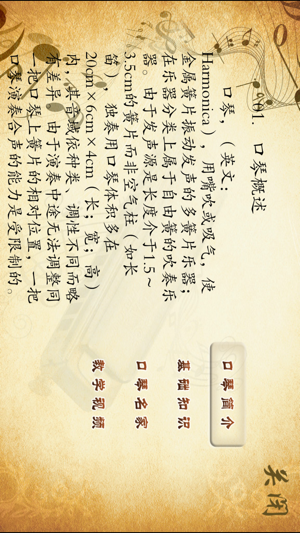 001. 口琴概述
口琴，（英文：
Harmonica），用嘴吹或吸气，使
金属簧片振动发声的多簧片乐器；
在乐器分类上属于自由簧的吹奏乐
器。由于发声源是长度介于1.5～
3.5cm的簧片而非空气柱（如长
笛）。独奏用口琴体积多在
20cm×6cm×4cm（长；宽；高）
内，其音域依种类、调性不同而略
有差异。由于演奏中途无法调整同
一把口琴上簧片的相对位置，一把
口琴演奏合声的能力是受限制的。
口琴简介
基础知识
口琴名家
教学视频
关闭